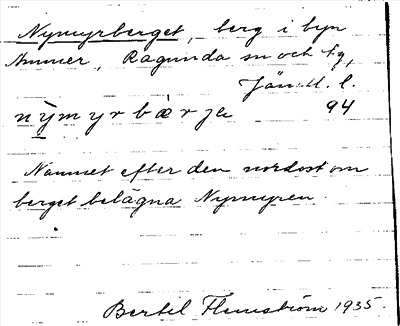 Nymyrberget, berg i byn
Ammer, Ragunda sn och tg,
Jämtl. l.
nỳmyrbærja 94
Namnet efter den nordost om
berget belägna Nymyren.
Bertil Flemström 1935.